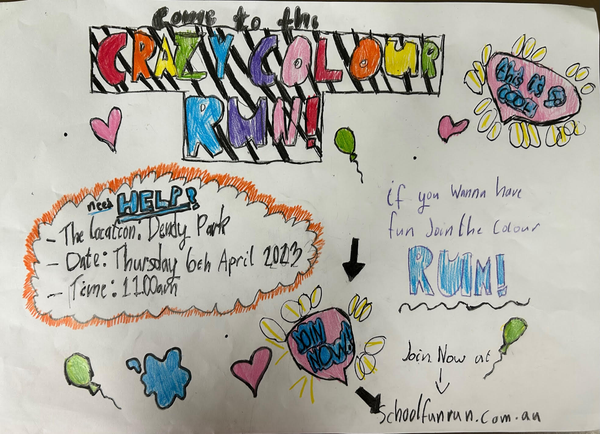 Come to the
CRAZY COLOUR
RUN!
this is so
COOL!
need HELP?
- The Location: Dendy Park
- Date: Thursday 6th April 2023
- Time: 11:00am
if you wanna have
fun Join the colour
RUN!
JOIN
NOW!!
Join Now at
Schoolfunrun.com.au